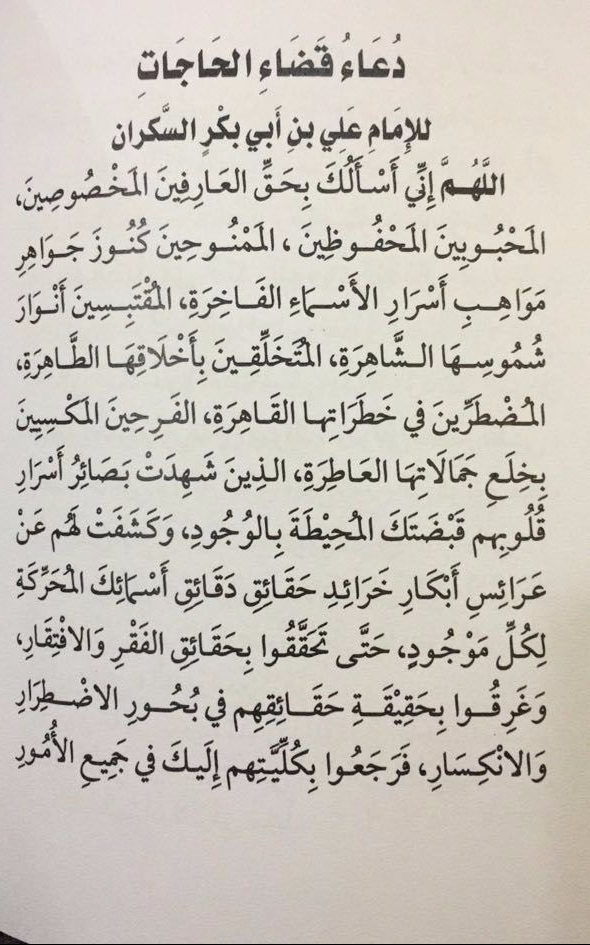 دُعَاءُ قَضَاءِ الحَاجَاتِ
للإِمَامِ عَلِي بنِ أَبي بكْرٍ السَّكران
اللَّهُمَّ إِنِّي أَسْأَلُكَ بِحَقِّ العَارِفِينَ المَخْصُوصِينَ،
المَحْبُوبِينَ المَحْفُوظِينَ، المَمْنُوحِينَ كُنُوزَ جَوَاهِرِ
مَوَاهِبِ أَسْرَارِ الأَسْمَاءِ الفَاخِرَةِ، المُقْتَبِسِينَ أَنْوَارَ
شُمُوسِهَا الشَّاهِرَةِ، المُتَخَلِّقِينَ بِأَخْلَاقِهَا الطَّاهِرَةِ،
المُضْطَرِّينَ في خَطَرَاتِها القَاهِرَةِ، الفَرِحِينَ المَكْسِيِينَ
بِخِلَعِ جَمَالَاتِهَا العَاطِرَةِ، الذِينَ شَهِدَتْ بَصَائِرُ أَسْرَارِ
قُلُوبِهم قَبْضَتَكَ المُحِيْطَةَ بِالوُجُودِ، وَكَشَفَتْ لَهُم عَنْ
عَرَائِسِ أَبْكَارِ خَرَائِدِ حَقَائِقِ دَقَائِقِ أَسْمَائِكَ المُحَرِّكَةِ
لِكُلِّ مَوْجُودٍ، حَتَّى تَحَقَّقُوا بِحَقَائِقِ الفَقْرِ وَالافْتِقَارِ،
وَغَرِقُوا بِحَقِيْقَةِ حَقَائِقِهِم في بُحُورِ الاضْطِرَارِ
وَالانْكِسَارِ، فَرَجَعُوا بِكُلِّيَّتِهم إِلَيكَ في جَمِيعِ الأُمُورِ